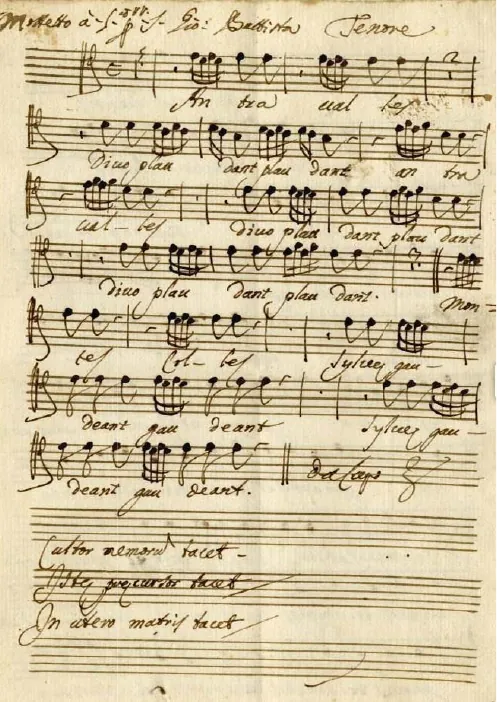 Motetto à 5 p S. Gio: Battista Tenore
An tra val les
Divo plau dant plau dant an tra
val - les divo plau dant plau dant
divo plau dant plau dant. Mon=
tes Col - les Sylves gau -
deant gau deant Sylves gau -
deant gau deant. da Capo
Cultor nemorum tacet -
Iste precursor tacet
In utero matris tacet